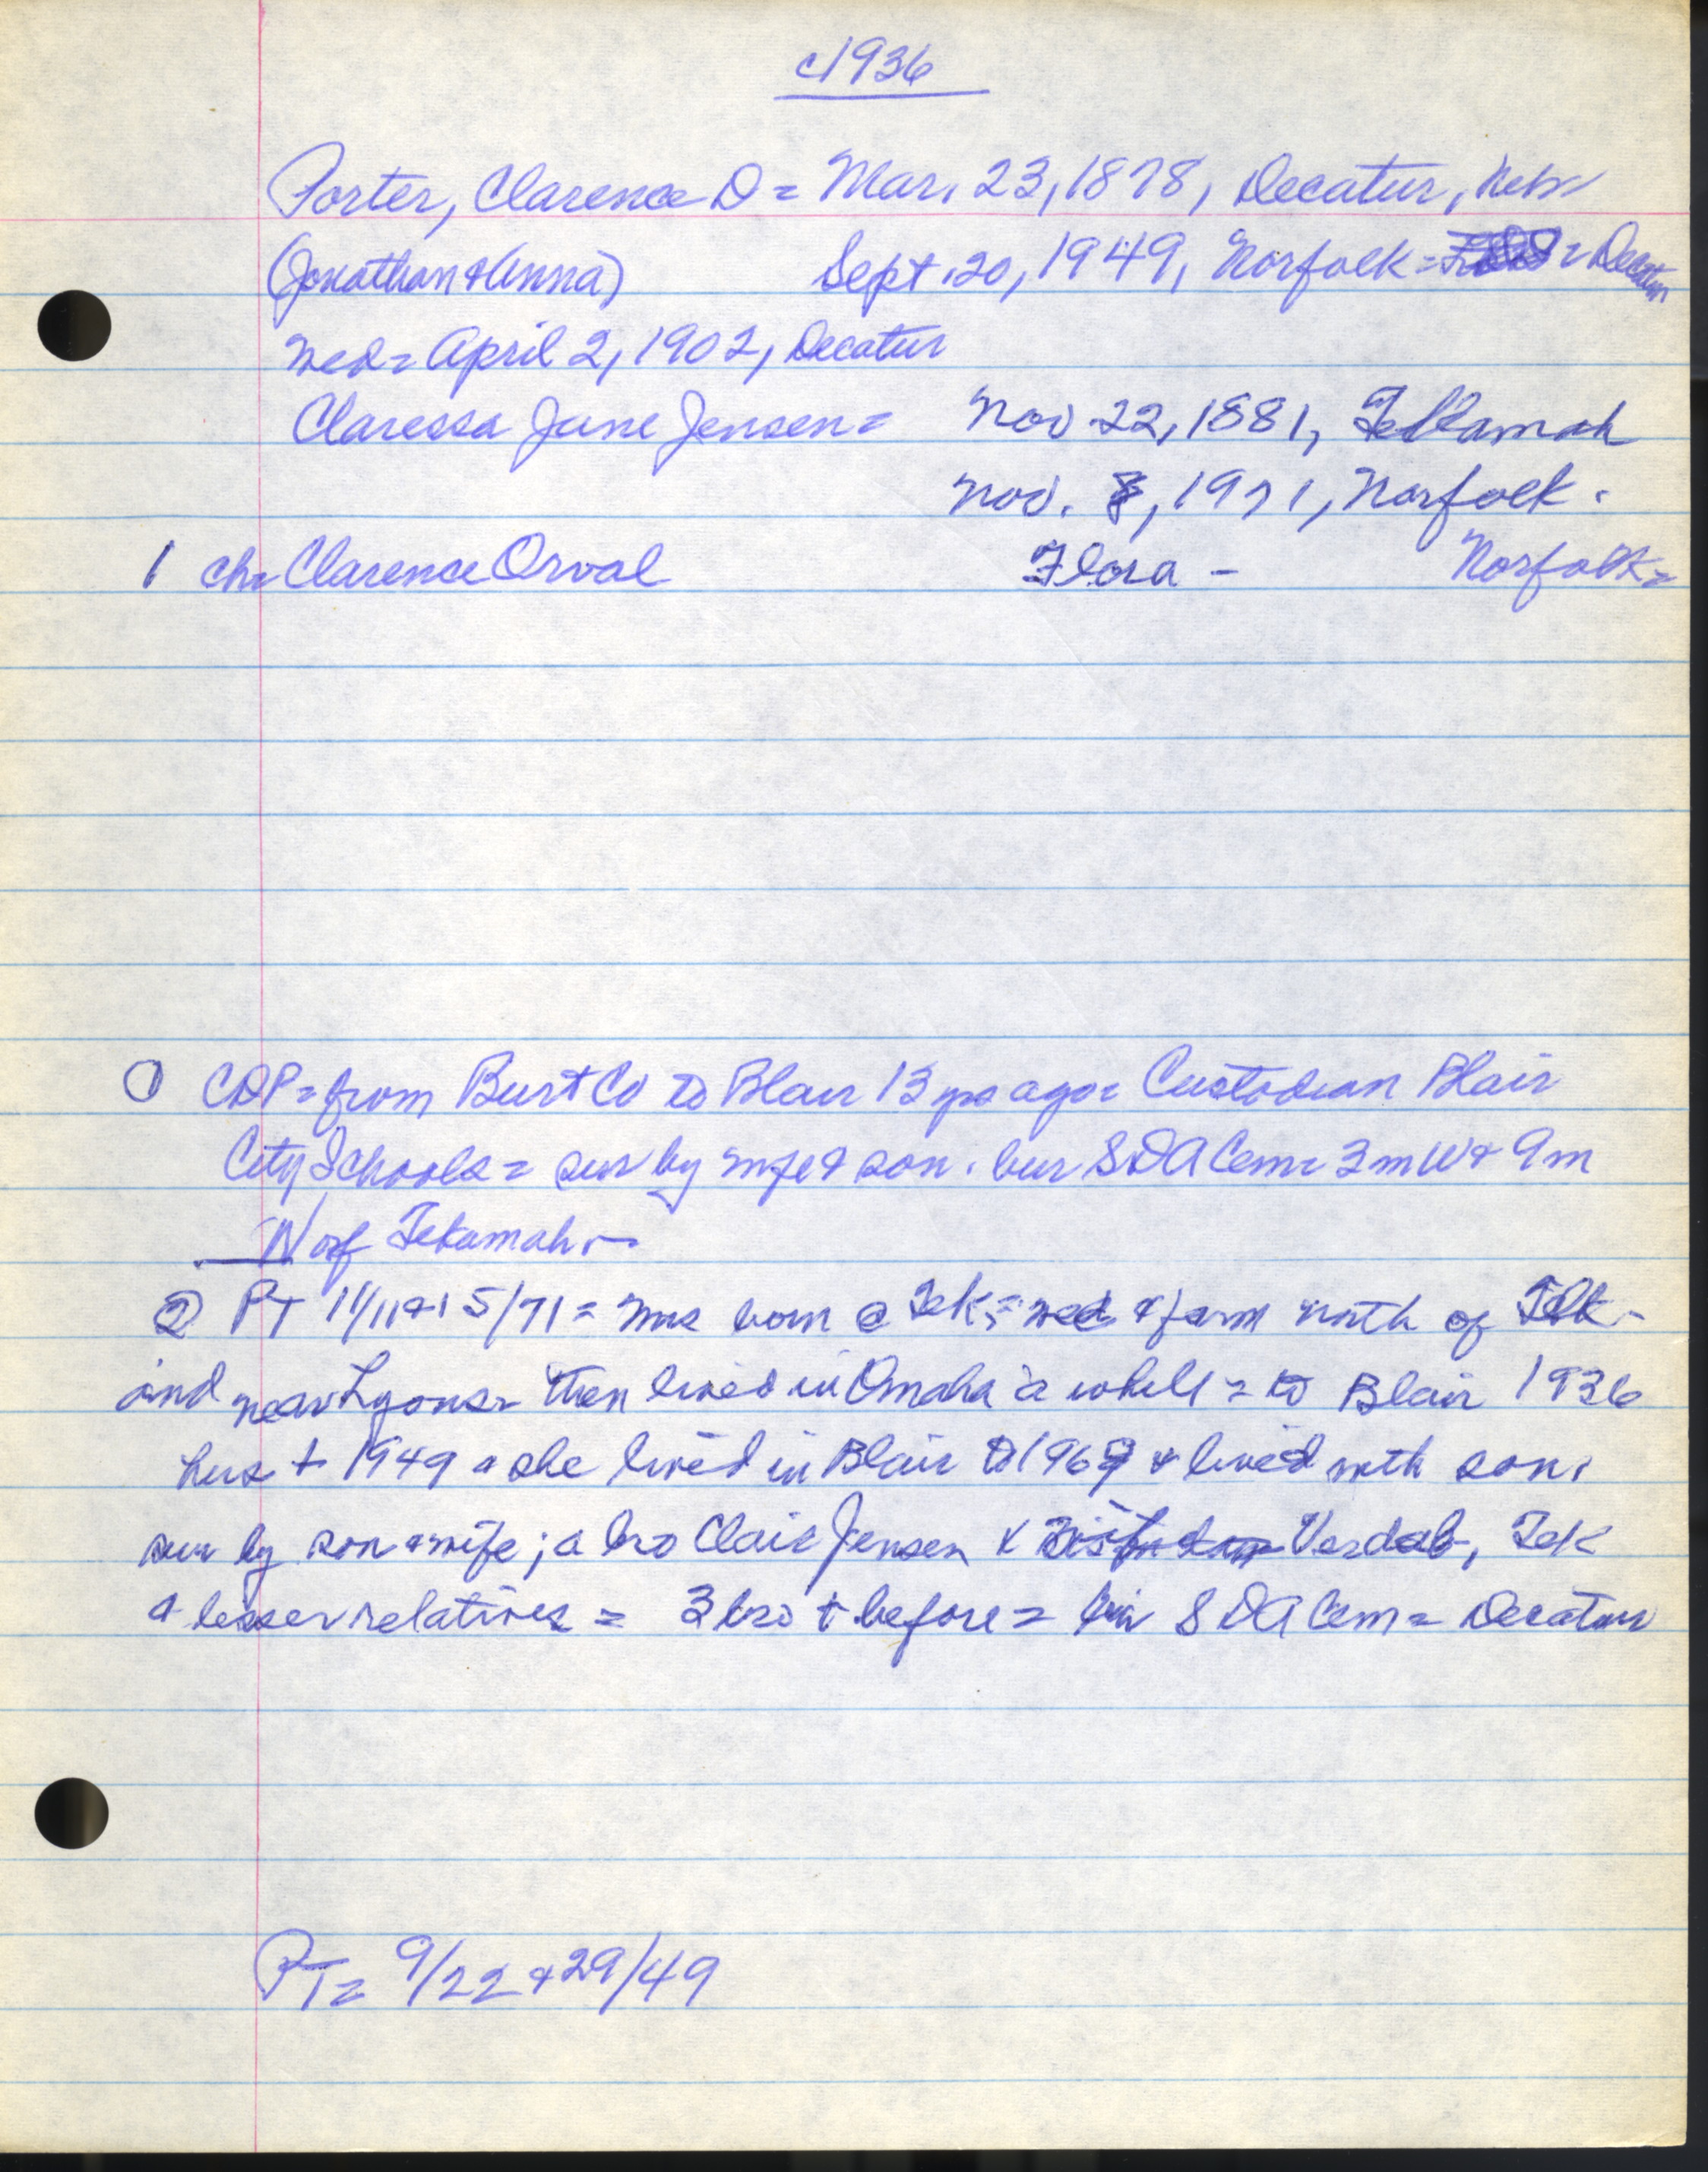 c1936
Porter, Clarence D = Mar. 23, 1878, Decatur, Nebr
(Jonathan & Anna) Sept. 20, 1949, Norfolk = = Decatur
wed = April 2, 1902, Decatur
Claressa Jane Jensen = Nov 22, 1881, Tekamah
Nov. 8, 1971, Norfolk.
1 ch = Clarence Orval Flora - Norfolk =
① CDP = from Burt Co to Blair 13 yrs ago = Custodian Blair
City Schools = sur by wife & son. bur SDA Cem = 3 m W & 9 m
N of Tekamah -
② PT 11/11 & 15/71 = Mrs born @ Tek = wed & farm north of Tek -
and near Lyons = then lived in Omaha a while = to Blair 1936
hus + 1949 & she lived in Blair to 1969 & lived with son.
sur by son & wife; a bro Clair Jensen & Verdab, Tek
& lesser relatives = 3 bro + before = SDA Cem = Decatur
PT = 9/22 & 29/49